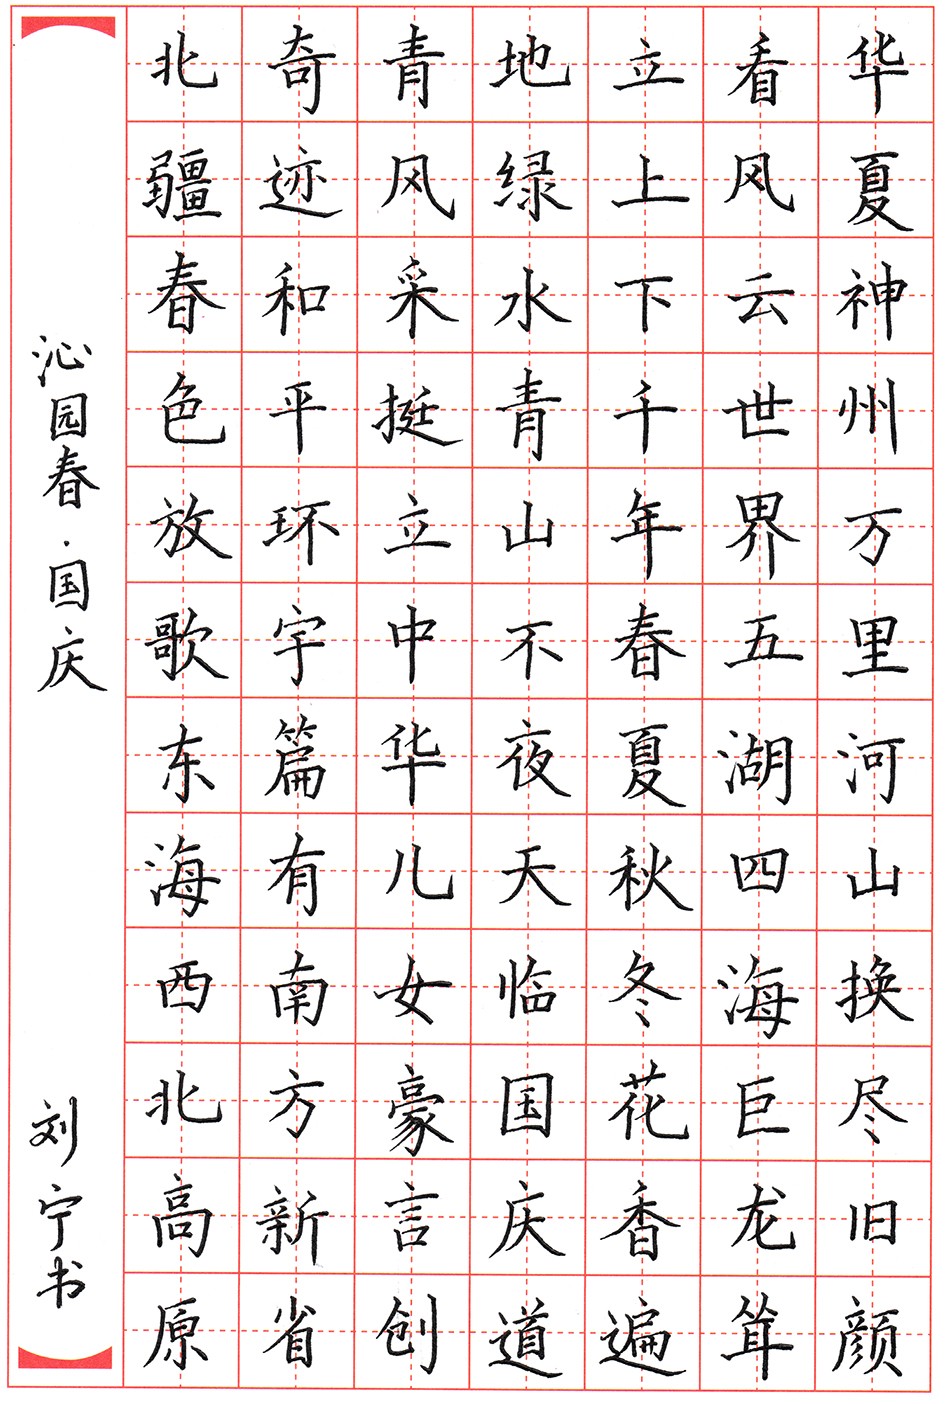 华夏神州万里河山换尽旧颜
看风云世界五湖四海巨龙耸
立上下千年春夏秋冬花香遍
地绿水青山不夜天临国庆道
青风采挺立中华儿女豪言创
奇迹和平环宇篇有南方新省
北疆春色放歌东海西北高原
沁园春·国庆
刘宁书